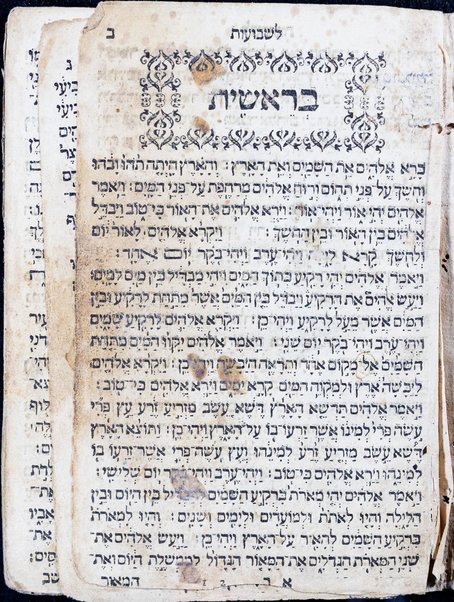 לשבועות
ב
בראשית
ברא אלהים את השמים ואת הארץ: והארץ היתה תהו ובהו
וחשך על פני תהום ורוח אלהים מרחפת על פני המים: ויאמר
אלהים יהי אור ויהי אור: וירא אלהים את האור כי טוב ויבדל
אלהים בין האור ובין החשך: ויקרא אלהים לאור יום
ולחשך קרא לילה ויהי ערב ויהי בקר יום אחד:
ויאמר אלהים יהי רקיע בתוך המים ויהי מבדיל בין מים למים:
ויעש אלהים את הרקיע ויבדל בין המים אשר מתחת לרקיע ובין
המים אשר מעל לרקיע ויהי כן: ויקרא אלהים לרקיע שמים
ויהי ערב ויהי בקר יום שני: ויאמר אלהים יקוו המים מתחת
השמים אל מקום אחד ותראה היבשה ויהי כן: ויקרא אלהים
ליבשה ארץ ולמקוה המים קרא ימים וירא אלהים כי טוב:
ויאמר אלהים תדשא הארץ דשא עשב מזריע זרע עץ פרי
עשה פרי למינו אשר זרעו בו על הארץ ויהי כן: ותוצא הארץ
דשא עשב מזריע זרע למינהו ועץ עשה פרי אשר זרעו בו
למינהו וירא אלהים כי טוב: ויהי ערב ויהי בקר יום שלישי:
ויאמר אלהים יהי מארת ברקיע השמים להבדיל בין היום ובין
הלילה והיו לאתת ולמועדים ולימים ושנים: והיו למאורת
ברקיע השמים להאיר על הארץ ויהי כן: ויעש אלהים את
שני המארת הגדלים את המאור הגדול לממשלת היום ואת
א ב
המאור